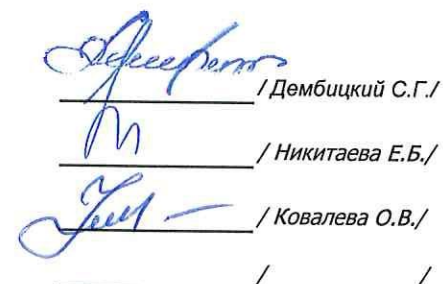 / Дембицкий С.Г./
/ Никитаева Е.Б./
/ Ковалева О.В./
/ /